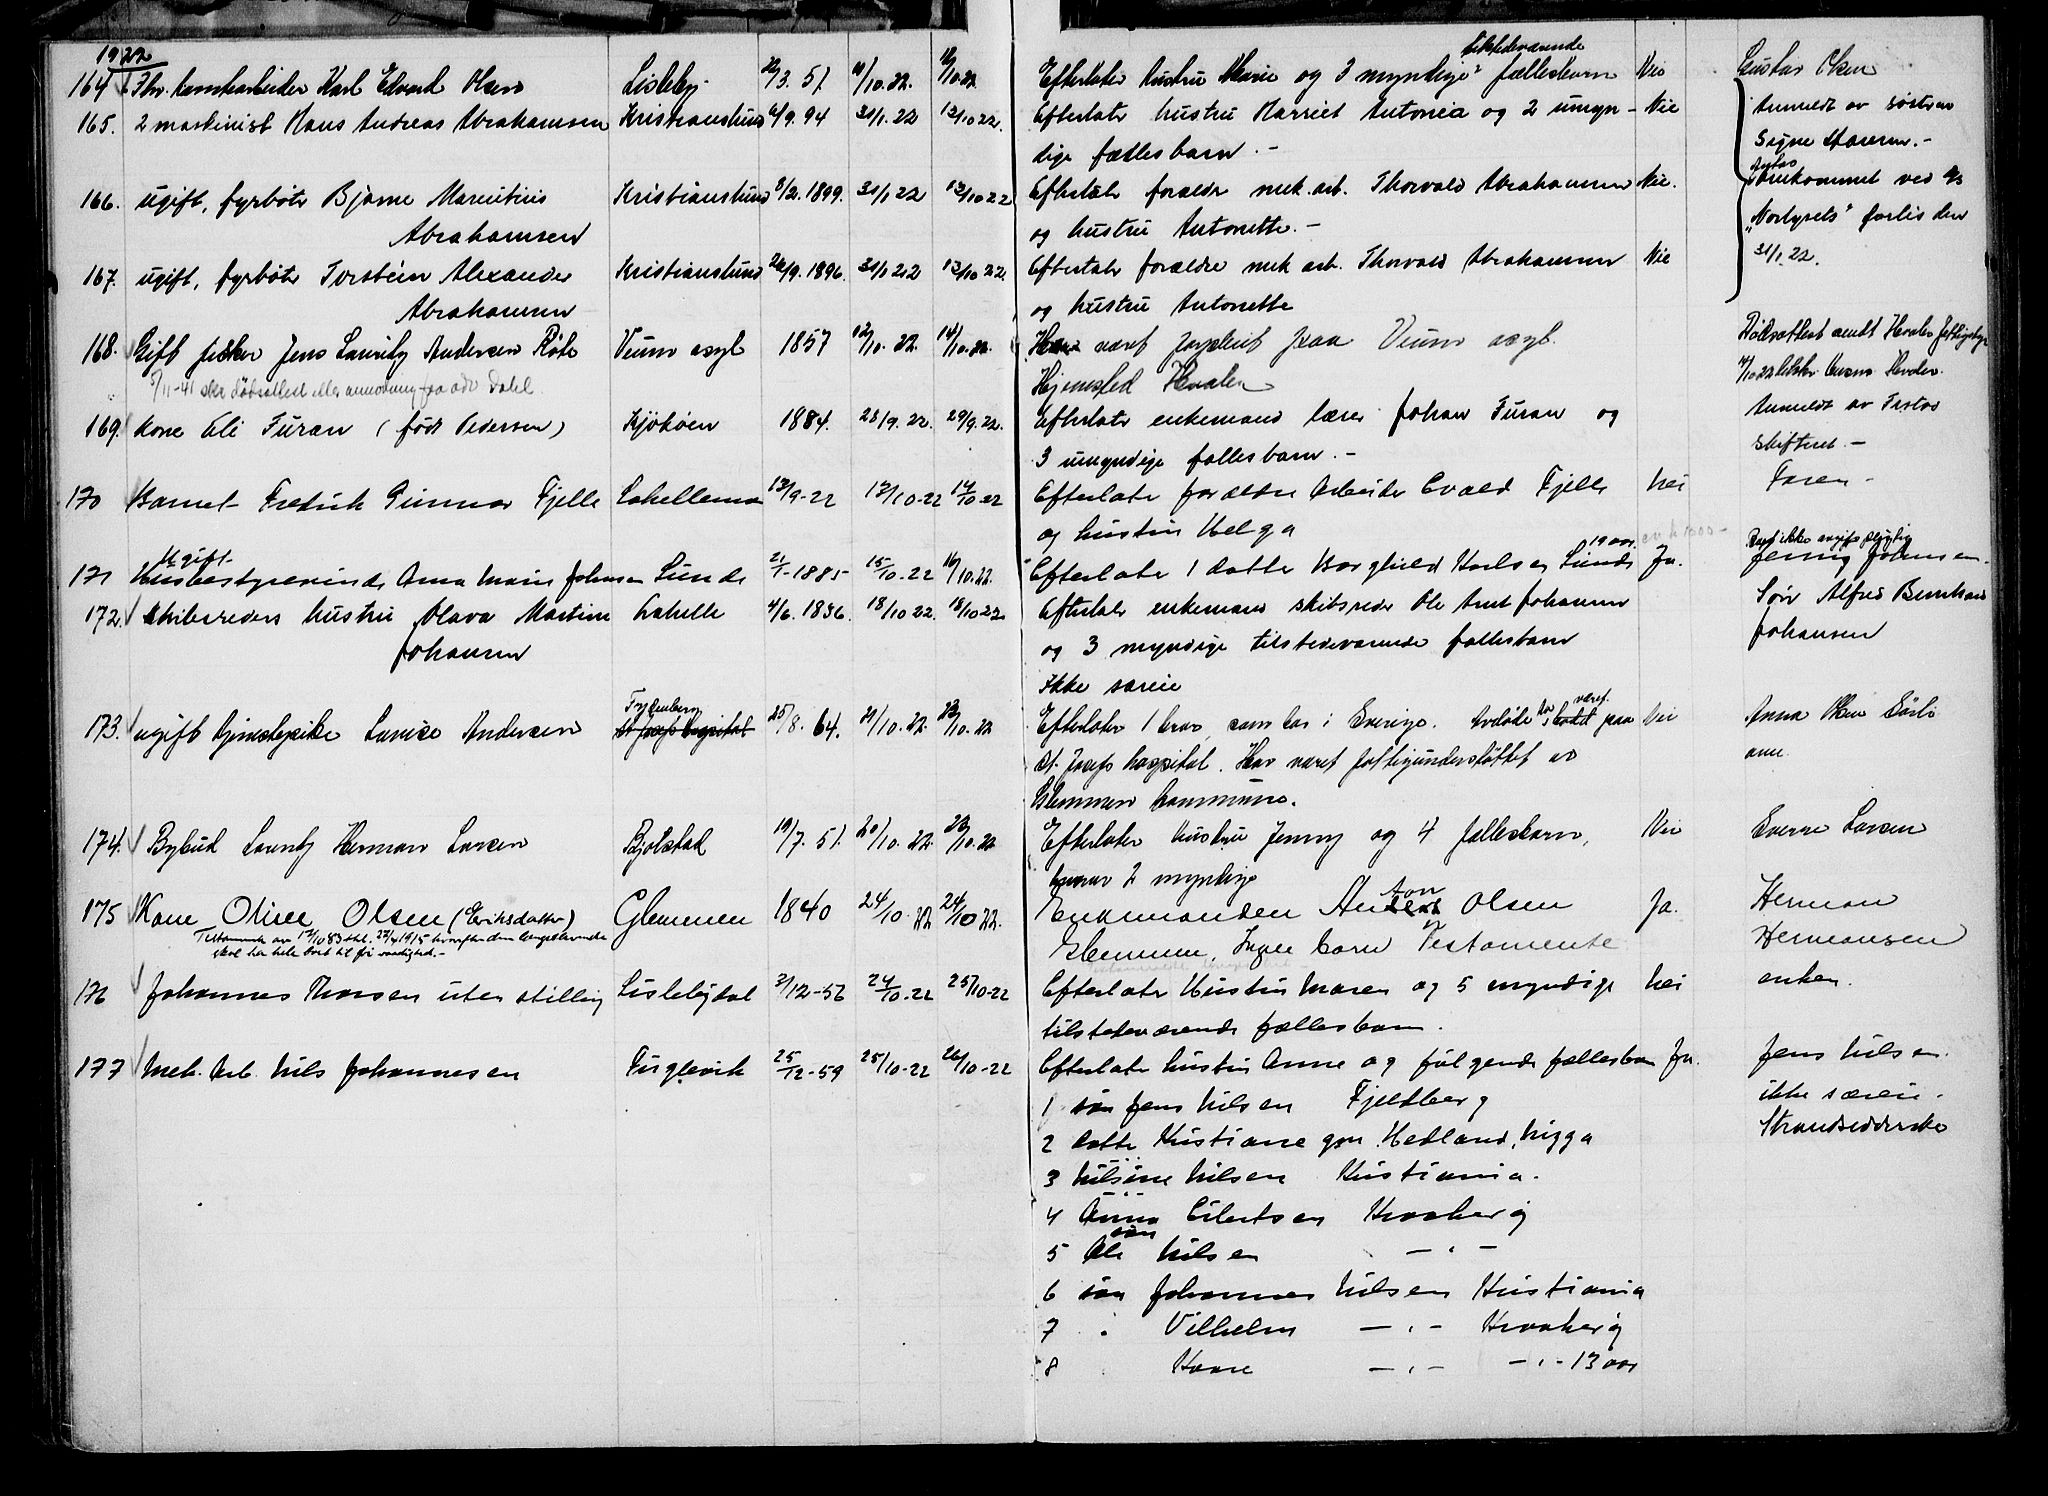 1922
164 Fhv. tomtearbeider Karl Edvard Olsen Lisleby 22/3. 51. 10/10. 22. 12/10 22 Efterlater hustru Marie og 3 myndige tilstedeværende fællesbarn Nei Gustav Olsen
165. 2 maskinist Hans Andreas Abrahamsen Kristianslund 6/9. 94 31/1. 22 13/10 22. Efterlater hustru Harriet Antonia og 2 umyn- Nei Anmeldt av søstren
dige fællesbarn. - Signe Hansen. -
166. ugift, fyrbøter Bjarne Mauritius Kristianslund 8/2. 1899. 31/1 22 13/10 22 Efterlater forældre mek. arb. Thorvald Abrahamsen Nei. omkommet ved D/S
Abrahamsen og hustru Antonette. - "Nordyrets" forlis den
167. ugift, fyrbøter Torstein Alexander Kristianslund 26/9. 1896. 31/1 22 13/10 22. Efterlater forældre mek arb. Thorvald Abrahamsen Nei 31/1. 22.
Abrahamsen og hustru Antonette
168. Gift fisker Jens Lauritz Andersen Røte Veum asyl 1857 12/10. 22. 14/10. 22. Har været forpleiet paa Veum asyl. Dødsattest sendt Hvaler
5/11-41 skr. dødsattest efter anmodning fra adv. Dahl Hjemsted Hvaler
169. Kone Eli Furan (født Pedersen) Kjøkøen 1884. 28/9. 22. 29/9. 22. Efterlater enkemand lærer Johan Furan og Anmeldt av Tistos
3 umyndige fællesbarn. - skifteret. -
170 Barnet Fredrik Gunnar Fjelle Lahellemoen 13/9-22 13/10-22 14/10-22 Efterlater forældre Arbeider Evald Fjelle Nei Faren -
og hustru Helga
171 Ugift Husbestyrerinde Anna Marie Johansen Lunde 21/1-1885 15/10-22 16/10. 22. Efterlater 1 datter Borghild Karlsen Lunde 19 aar Ja. Jenny Johansen.
172. Skibsreders hustru Olava Martine Lahelle 4/6. 1836. 18/10 22. 18/10 22. Efterlater enkemand skibsreder Ole Arnt Johansen Søn Alfred Bernhard
Johansen og 3 myndige tilstedeværende fællesbarn Johansen
Ikke særeie
173. ugift tjenestepike Lovise Andersen St Josefs hospital 25/8. 64. 21/10. 22. 23/10. 22 Efterlater 1 bror, som bor i Sverige. Avdøde har været paa Nei Anna Olsen
St. Josefs hospital. Har været fattigunderstøttet av
Glemmen kommune.
174. Bybud Lauritz Herman Larsen Bjølstad 19/7. 51. 20/10. 22. 23/10. 22 Efterlater hustru Jenny og 4 fællesbarn, Nei Sverre Larsen
hvorav 2 myndige
175 Kone Olise Olsen (Eriksdatter) Glemmen 1840 24/10. 22 24/10 22. Enkemanden Anton Olsen Ja. Herman
Testamente av 13/10 83 hvorefter den længstlevende Glemmen. Ingen barn Testamente Hermansen
skal ha hele boet til fri raadighed. -
176 Johannes Thorsen uten stilling Lislebydal 2/12-56 24/10-22 25/10-22 Efterlater Hustru Maren og 5 myndige Nei enken.
tilstedeværende fællesbarn.
177 Mek. Arb. Nils Johannesen Fuglevik 25/12-59 25/10-22 26/10-22 Efterlater hustru Anne og følgende fællesbarn Ja. Jens Nilsen.
1 søn Jens Nilsen Fjeldberg ikke særeie.
2 datter Kristiane gm. Hedland, Rigga
3 Nilsine Nilsen Kristiania.
4 Anna Eilertsen Kraakerøy
5 søn Ole Nilsen — " —
6 søn Johannes Nilsen Kristiania
7 " Vilhelm — " — Kraakerøy
8 Kaare — " — — " — 13 aar